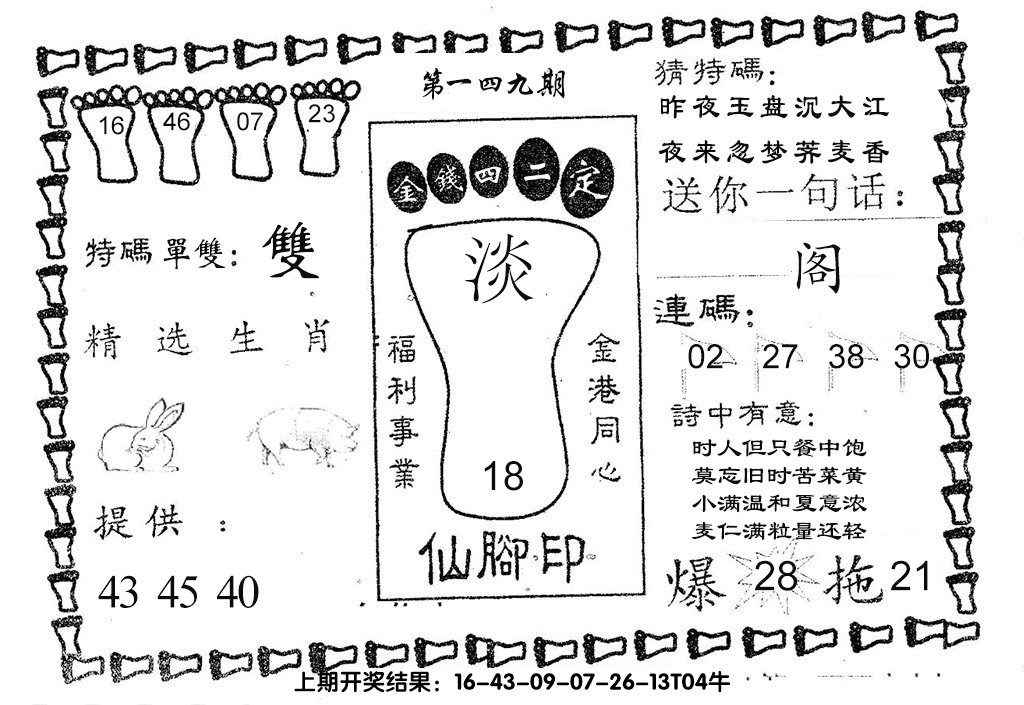 第一四九期
16 46 07 23
特碼單雙：雙
精选生肖
提供：
43 45 40
金錢四二定
淡
18
福利事業
金港同心
仙腳印
猜特碼：
昨夜玉盘沉大江
夜来忽梦荞麦香
送你一句话：
阁
連碼：
02 27 38 30
詩中有意：
时人但只餐中饱
莫忘旧时苦菜黄
小满温和夏意浓
麦仁满粒量还轻
爆 28 拖 21
上期开奖结果：16-43-09-07-26-13T04牛